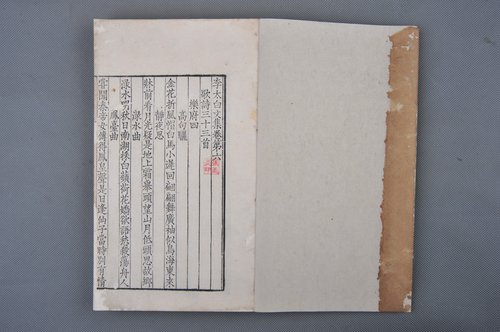 李太白文集卷第六
歌詩三十三首
樂府四
高句驪
金花折風帽白馬小遲回翩翩舞廣袖似鳥海東來
靜夜思
牀前看月光疑是地上霜舉頭望山月低頭思故鄉
淥水曲
淥水明秋日南湖採白蘋荷花嬌欲語愁殺蕩舟人
鳳臺曲
嘗聞秦帝女傳得鳳凰聲是日逢仙子當時別有情